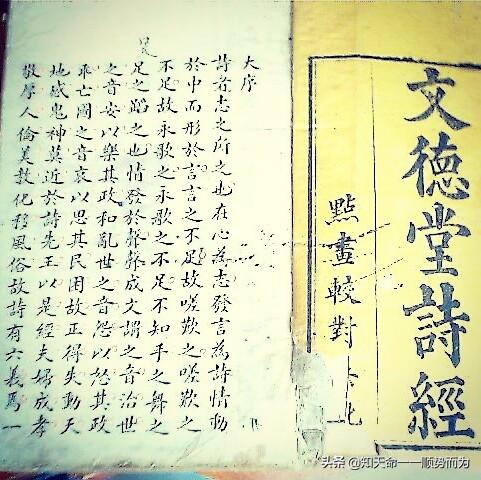 文德堂詩經
點畫較對
大序
詩者志之所之也在心為志發言為詩情動
於中而形於言言之不足故嗟歎之嗟歎之
不足故永歌之永歌之不足不知手之舞之
足之蹈之也情發於聲聲成文謂之音治世
之音安以樂其政和亂世之音怨以怒其政
乖亡國之音哀以思其民困故正得失動天
地感鬼神莫近於詩先王以是經夫婦成孝
敬厚人倫美教化移風俗故詩有六義焉一
头条 @知天命一一顺势而为